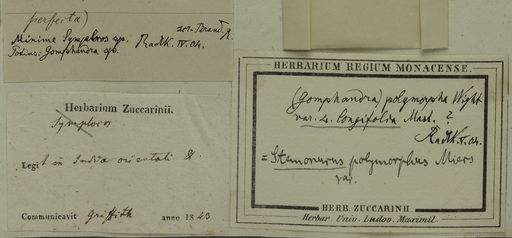 perfecta)
Minime Symplocos sp.
Potius: Gomphandra sp. Radlk. IV. 04.
Herbarium Zuccarinii.
Symplocos
Legit in India orientali
Communicavit Griffith anno 1843
HERBARIUM REGIUM MONACENSE.
(Gomphandra) polymorpha Wight
var. 4. longifolia Mast. ?
Radlk. IV. 04.
= Stemonurus polymorphus Miers
var.
HERB. ZUCCARINII
Herbar. Univ. Ludov. Maximil.